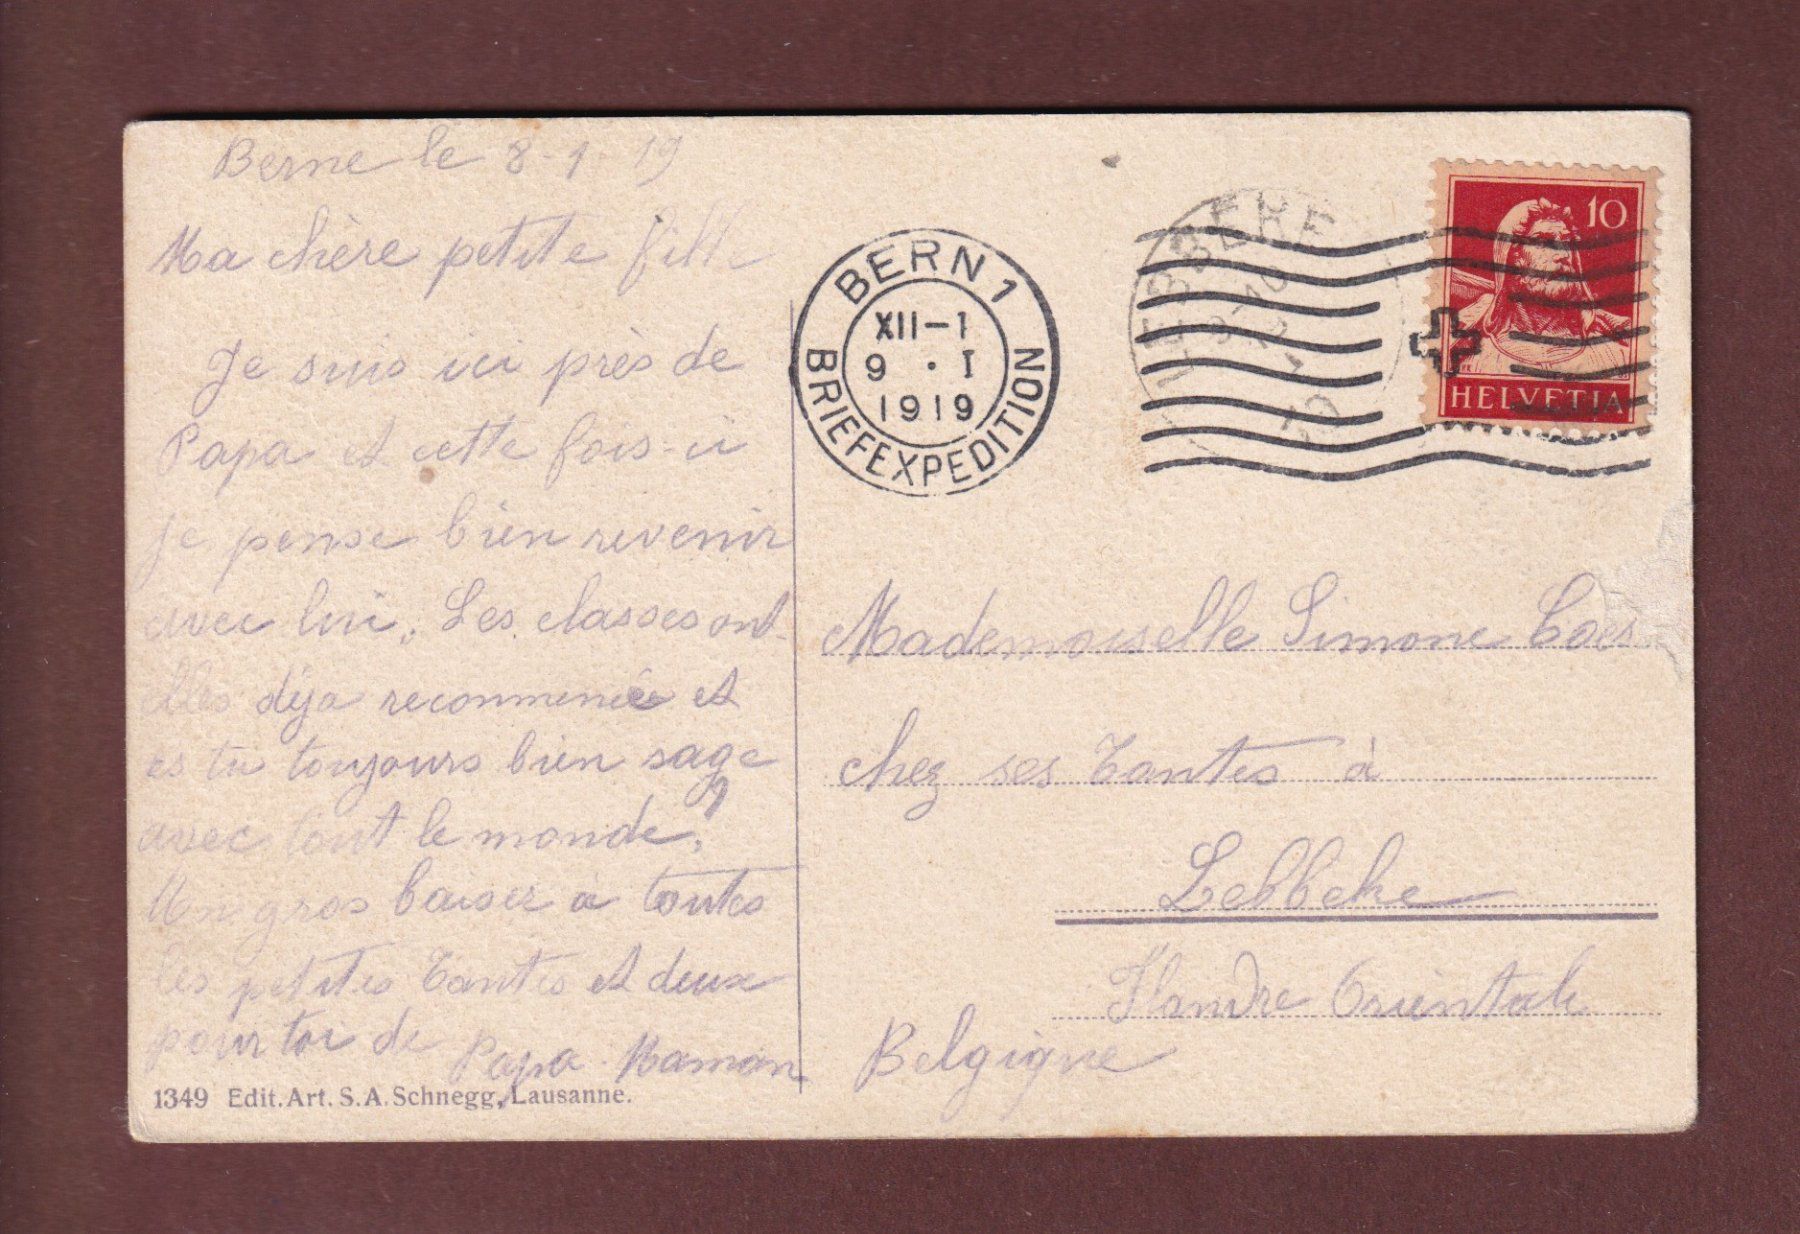 Berne le 8-1-19
Ma chère petite fille
Je suis ici près de
Papa et cette fois-ci
je pense bien revenir
avec lui. Les classes ont-
elles déja recommencé et
es tu toujours bien sage
avec tout le monde?
Un gros baiser à toutes
les petites Tantes et deux
pour toi de Papa-Maman
1349 Edit. Art. S.A. Schnegg, Lausanne.
BERN 1
XII-1
9 . I
1919
BRIEFEXPEDITION
10
HELVETIA
Mademoiselle Simone
chez ses Tantes à
Lebbeke
Flandre Orientale
Belgique